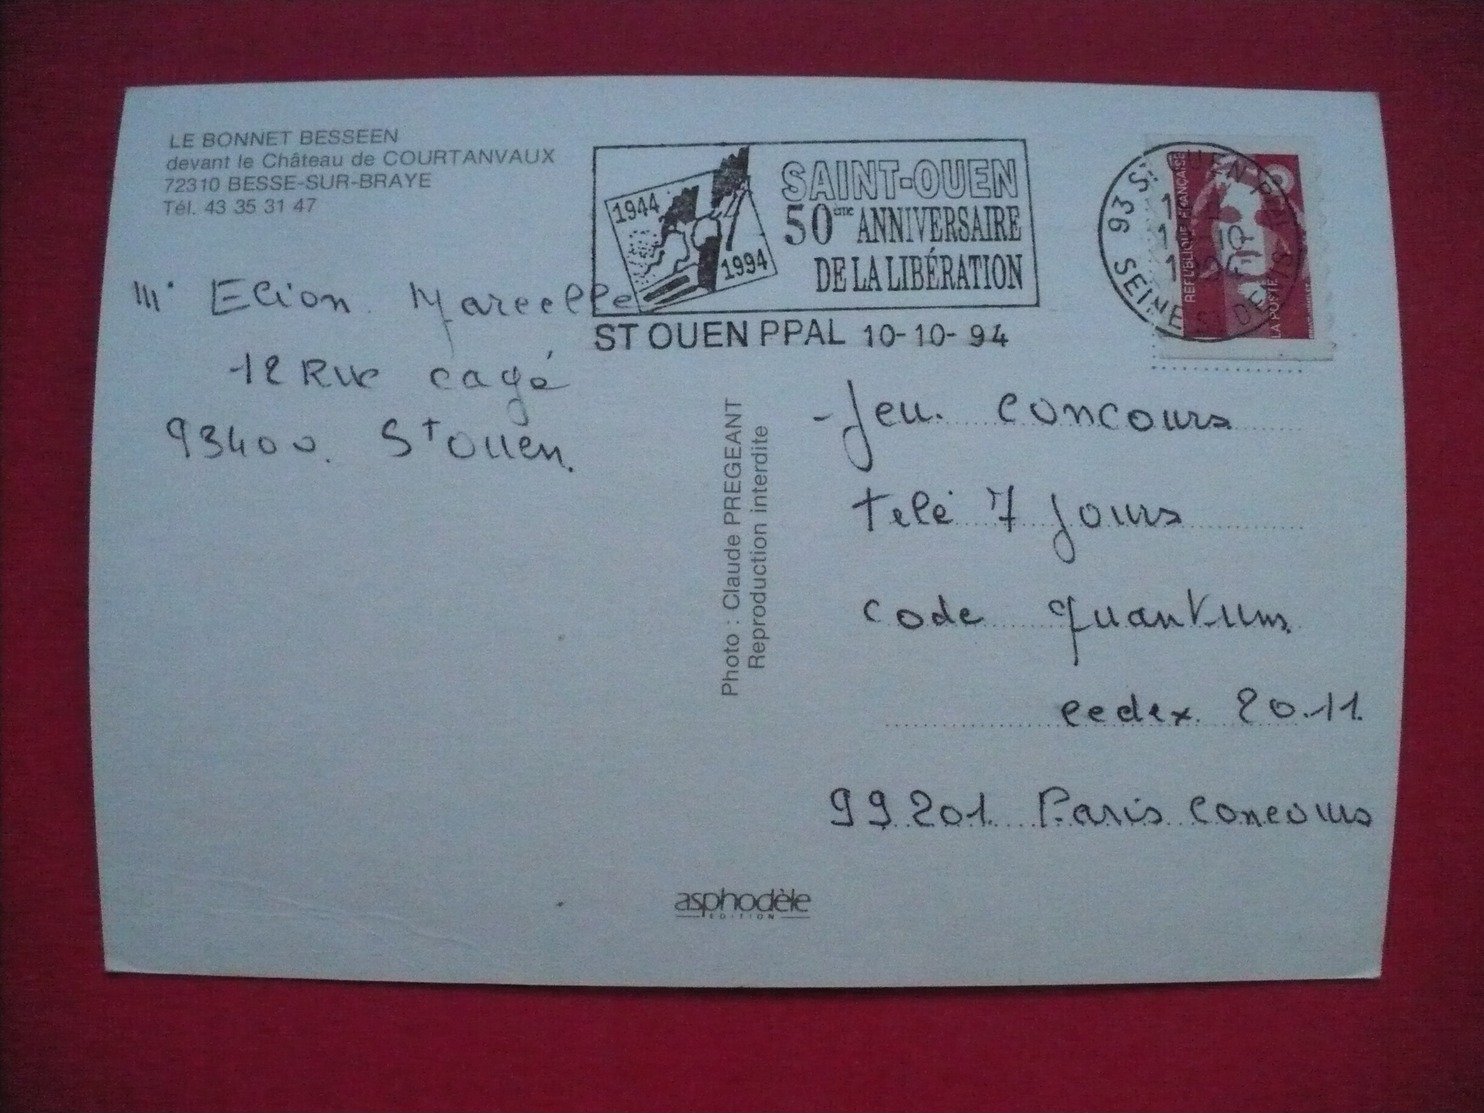 LE BONNET BESSEEN
devant le Château de COURTANVAUX
72310 BESSE-SUR-BRAYE
Tél. 43 35 31 47
1944
1994
SAINT-OUEN
50ème ANNIVERSAIRE
DE LA LIBÉRATION
ST OUEN PPAL 10-10-94
93 ST OUEN PPAL
SEINE ST DENIS
REPUBLIQUE FRANÇAISE
LA POSTE
Elion Marcelle
12 Rue cagé
93400. St Ouen.
Photo : Claude PREGEANT
Reproduction interdite
- Jeu. concours
Telé 7 Jours
code quantum
cedex 20.11.
99201. Paris Concours
asphodèle
EDITION